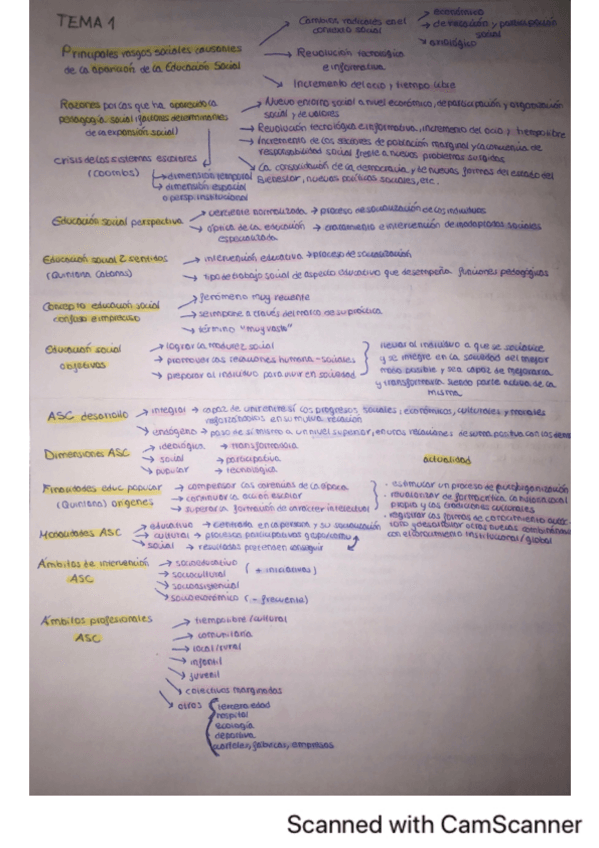 TEMA 1
Cambios radicales en el contexto social
económico
de relación y participación social
axiológico
Principales rasgos sociales causantes
de la aparición de la Educación Social
Revolución tecnológica
e informativa
Incremento del ocio y tiempo libre
Razones por las que ha aparecido la
pedagogía social (factores determinantes
de la expansión social)
Nuevo entorno social a nivel económico, de participación y organización
social y de valores
Revolución tecnológica e informativa, incremento del ocio y tiempo libre
Incremento de los sectores de población marginal y conciencia de
responsabilidad social frente a nuevos problemas surgidos
La consolidación de la democracia y de nuevas formas del estado del
Bienestar, nuevas políticas sociales, etc.
Crisis de los sistemas escolares
(Coombs)
dimensión temporal
dimensión espacial
o persp. institucional
Educación social perspectiva
vertiente normalizada → proceso de socialización de los individuos
óptica de la educación → tratamiento e intervención de inadaptados sociales
especializada
Educación social 2 sentidos
(Quintana Cabanas)
intervención educativa → proceso de socialización
tipo de trabajo social de aspecto educativo que desempeña funciones pedagógicas
Concepto educación social
confuso e impreciso
fenómeno muy reciente
se impone a través del marco de su práctica
término "muy vasto"
Educación social
objetivos
lograr la madurez social
promover las relaciones humano-sociales
preparar al individuo para vivir en sociedad
llevar al individuo a que se socialice
y se integre en la sociedad del mejor
modo posible y sea capaz de mejorarla
y transformarla siendo parte activa de la
misma
ASC desarrollo
integral → capaz de unir entre sí los progresos sociales, económicos, culturales y morales
reforzándolos en su mutua relación
endógeno → paso de sí mismo a un nivel superior, en unas relaciones de suma positiva con los demás
Dimensiones ASC
ideológica → transformadora
social → participativa
popular → tecnológica
actualidad
Finalidades educ popular
(Quintana) orígenes
compensar las carencias de la época
continuar la acción escolar
superar la formación de carácter intelectual
· estimular un proceso de autoorganización
· revalorizar de forma crítica la historia local
propia y las tradiciones culturales
· registrar las formas de conocimiento
y desarrollar otras nuevas combinándolas
con el conocimiento institucional/global
Modalidades ASC
educativo → centrada en la persona y su socialización
cultural → procesos participativos y
social → resultados pretenden conseguir
Ámbitos de intervención
ASC
socioeducativo
sociocultural
(+ iniciativas)
socioasistencial
socioeconómico (- frecuente)
Ámbitos profesionales
ASC
tiempo libre/cultural
comunitaria
local/rural
infantil
juvenil
colectivos marginados
otros
tercera edad
hospital
ecología
deportiva
cuarteles, fábricas, empresas
Scanned with CamScanner